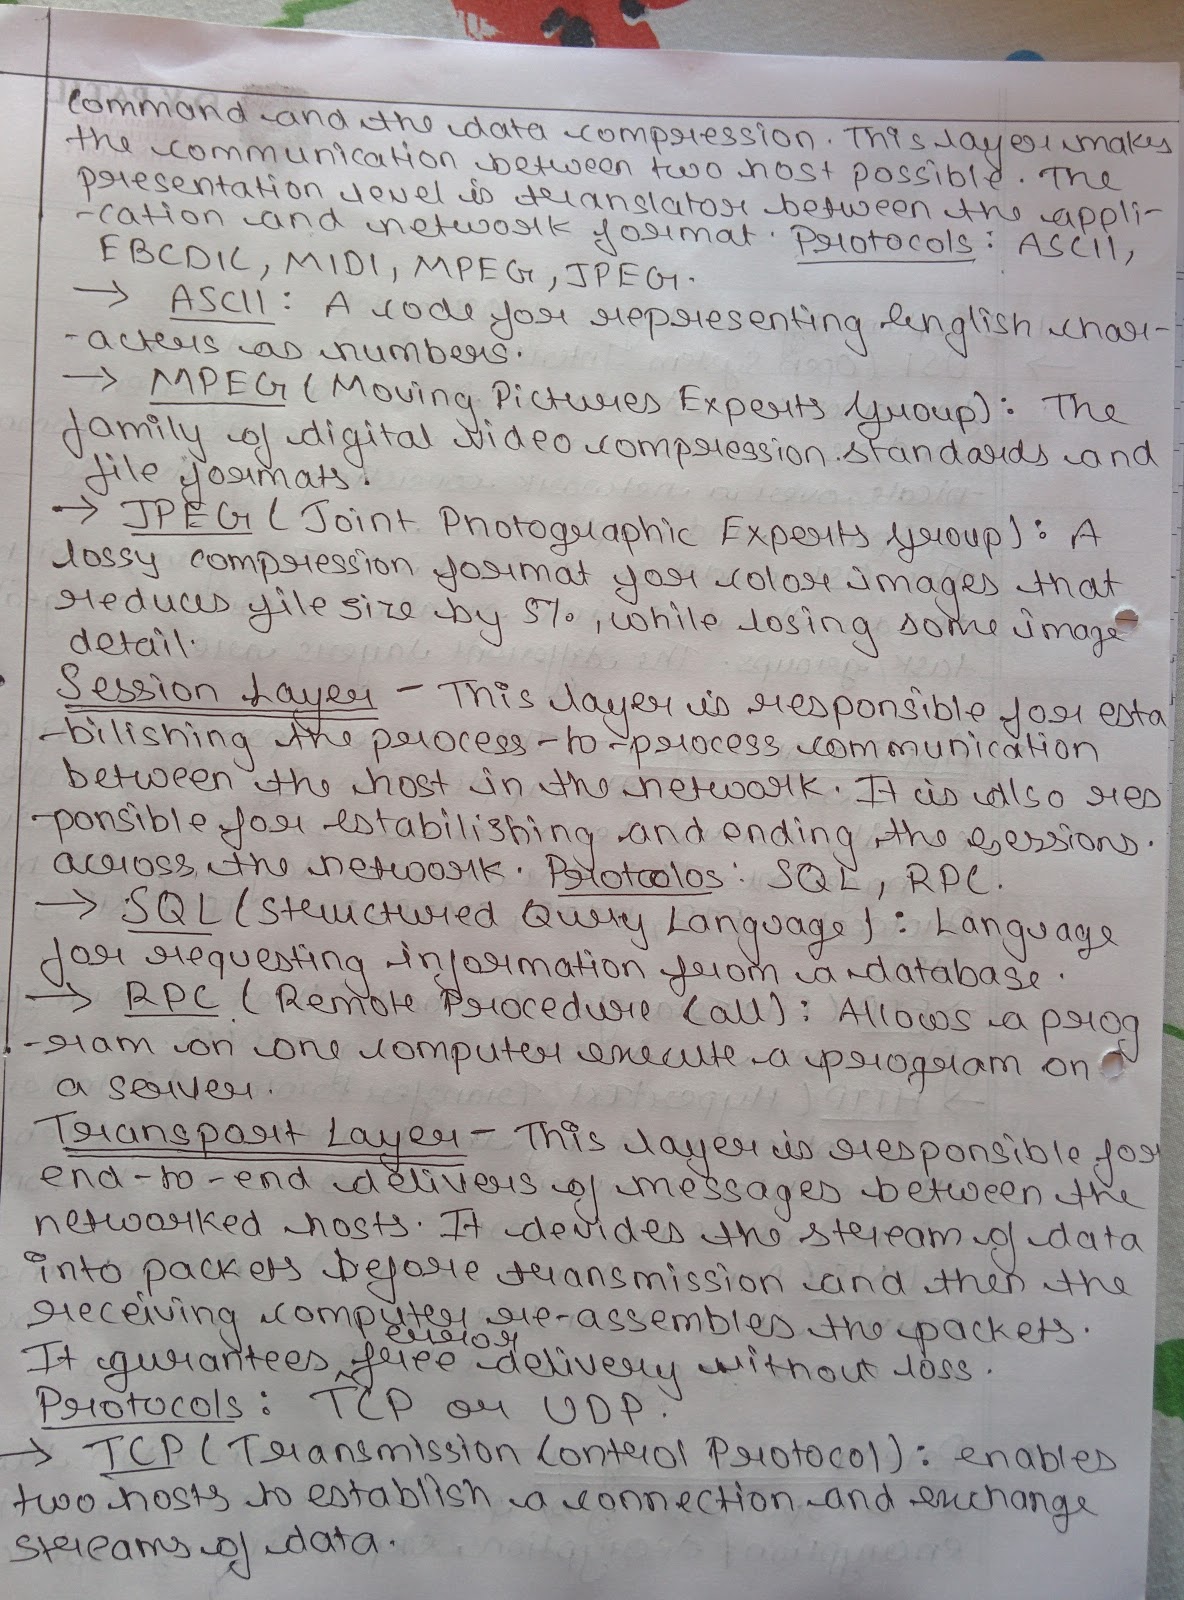 command and the data compression. This layer makes
the communication between two host possible. The
presentation level is translator between the appli-
-cation and network format. Protocols: ASCII,
EBCDIC, MIDI, MPEG, JPEG.
→ ASCII: A code for representing English char-
-acters as numbers.
→ MPEG (Moving Pictures Experts Group): The
family of digital video compression standards and
file formats.
→ JPEG (Joint Photographic Experts Group): A
lossy compression format for color images that
reduces file size by 5%, while losing some image
detail.
Session Layer - This layer is responsible for esta
-bilishing the process-to-process communication
between the host in the network. It is also res
-ponsible for estabilishing and ending the sessions.
across the network. Protocolos: SQL, RPC.
→ SQL (Structured Query Language): Language
for requesting information from a database.
→ RPC (Remote Procedure Call): Allows a prog
-ram on one computer execute a program on
a server.
Transport Layer - This layer is responsible for
end-to-end delivers of messages between the
networked hosts. It devides the stream of data
into packets before transmission and then the
receiving computer re-assembles the packets.
It gurantees error free delivery without loss.
Protocols: TCP or UDP.
→ TCP (Transmission Control Protocol): enables
two hosts to establish a connection and exchange
streams of data.